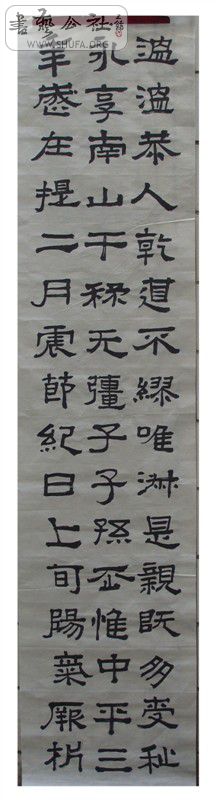 書藝公社
WWW.SHUFA.ORG
溫溫恭人乾道不繆唯淑是親既多受祉
永享南山干祿无彊子子孫惟中平三
年歲在提二月震節紀日上旬陽氣厥析